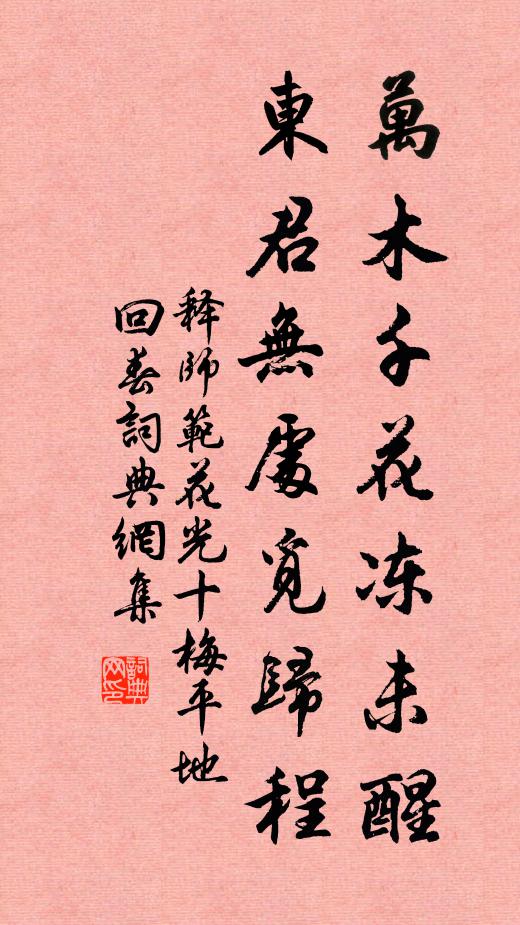 萬木千花冻未醒
東君無處覓歸程
释師範花光十梅平地
回春詞典網集
詞典网印